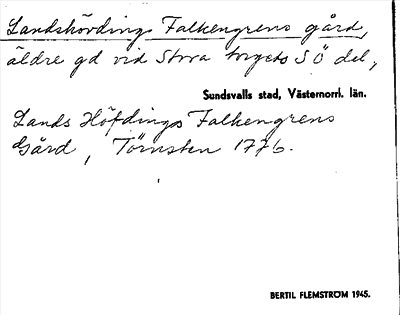 Landshövding Falkengrens gård,
äldre gd vid Stora torgets SÖ del,
Sundsvalls stad, Västernorrl. län.
Lands Höfdings Falkengrens
Gård, Törnsten 1776.
BERTIL FLEMSTRÖM 1945.